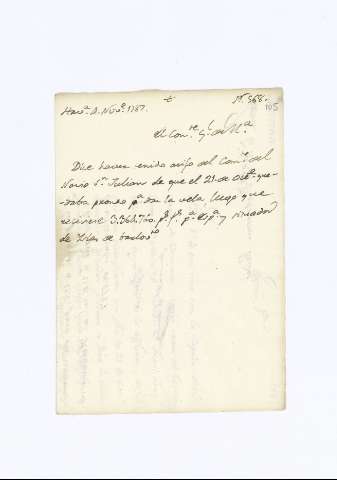 Hav.ª 2. Nov.e 1787.
N. 566.
105
El Com.te G.l de M.ª
Dice haver tenido aviso del Com.te del
Navio S.n Julian de que el 21 de Oct.e que-
-daba pronto p.ª dar la vela luego que
reciviese 3.360.740 p.s f.s p.ª Esp.ª y situados
de Islas de barlov.to